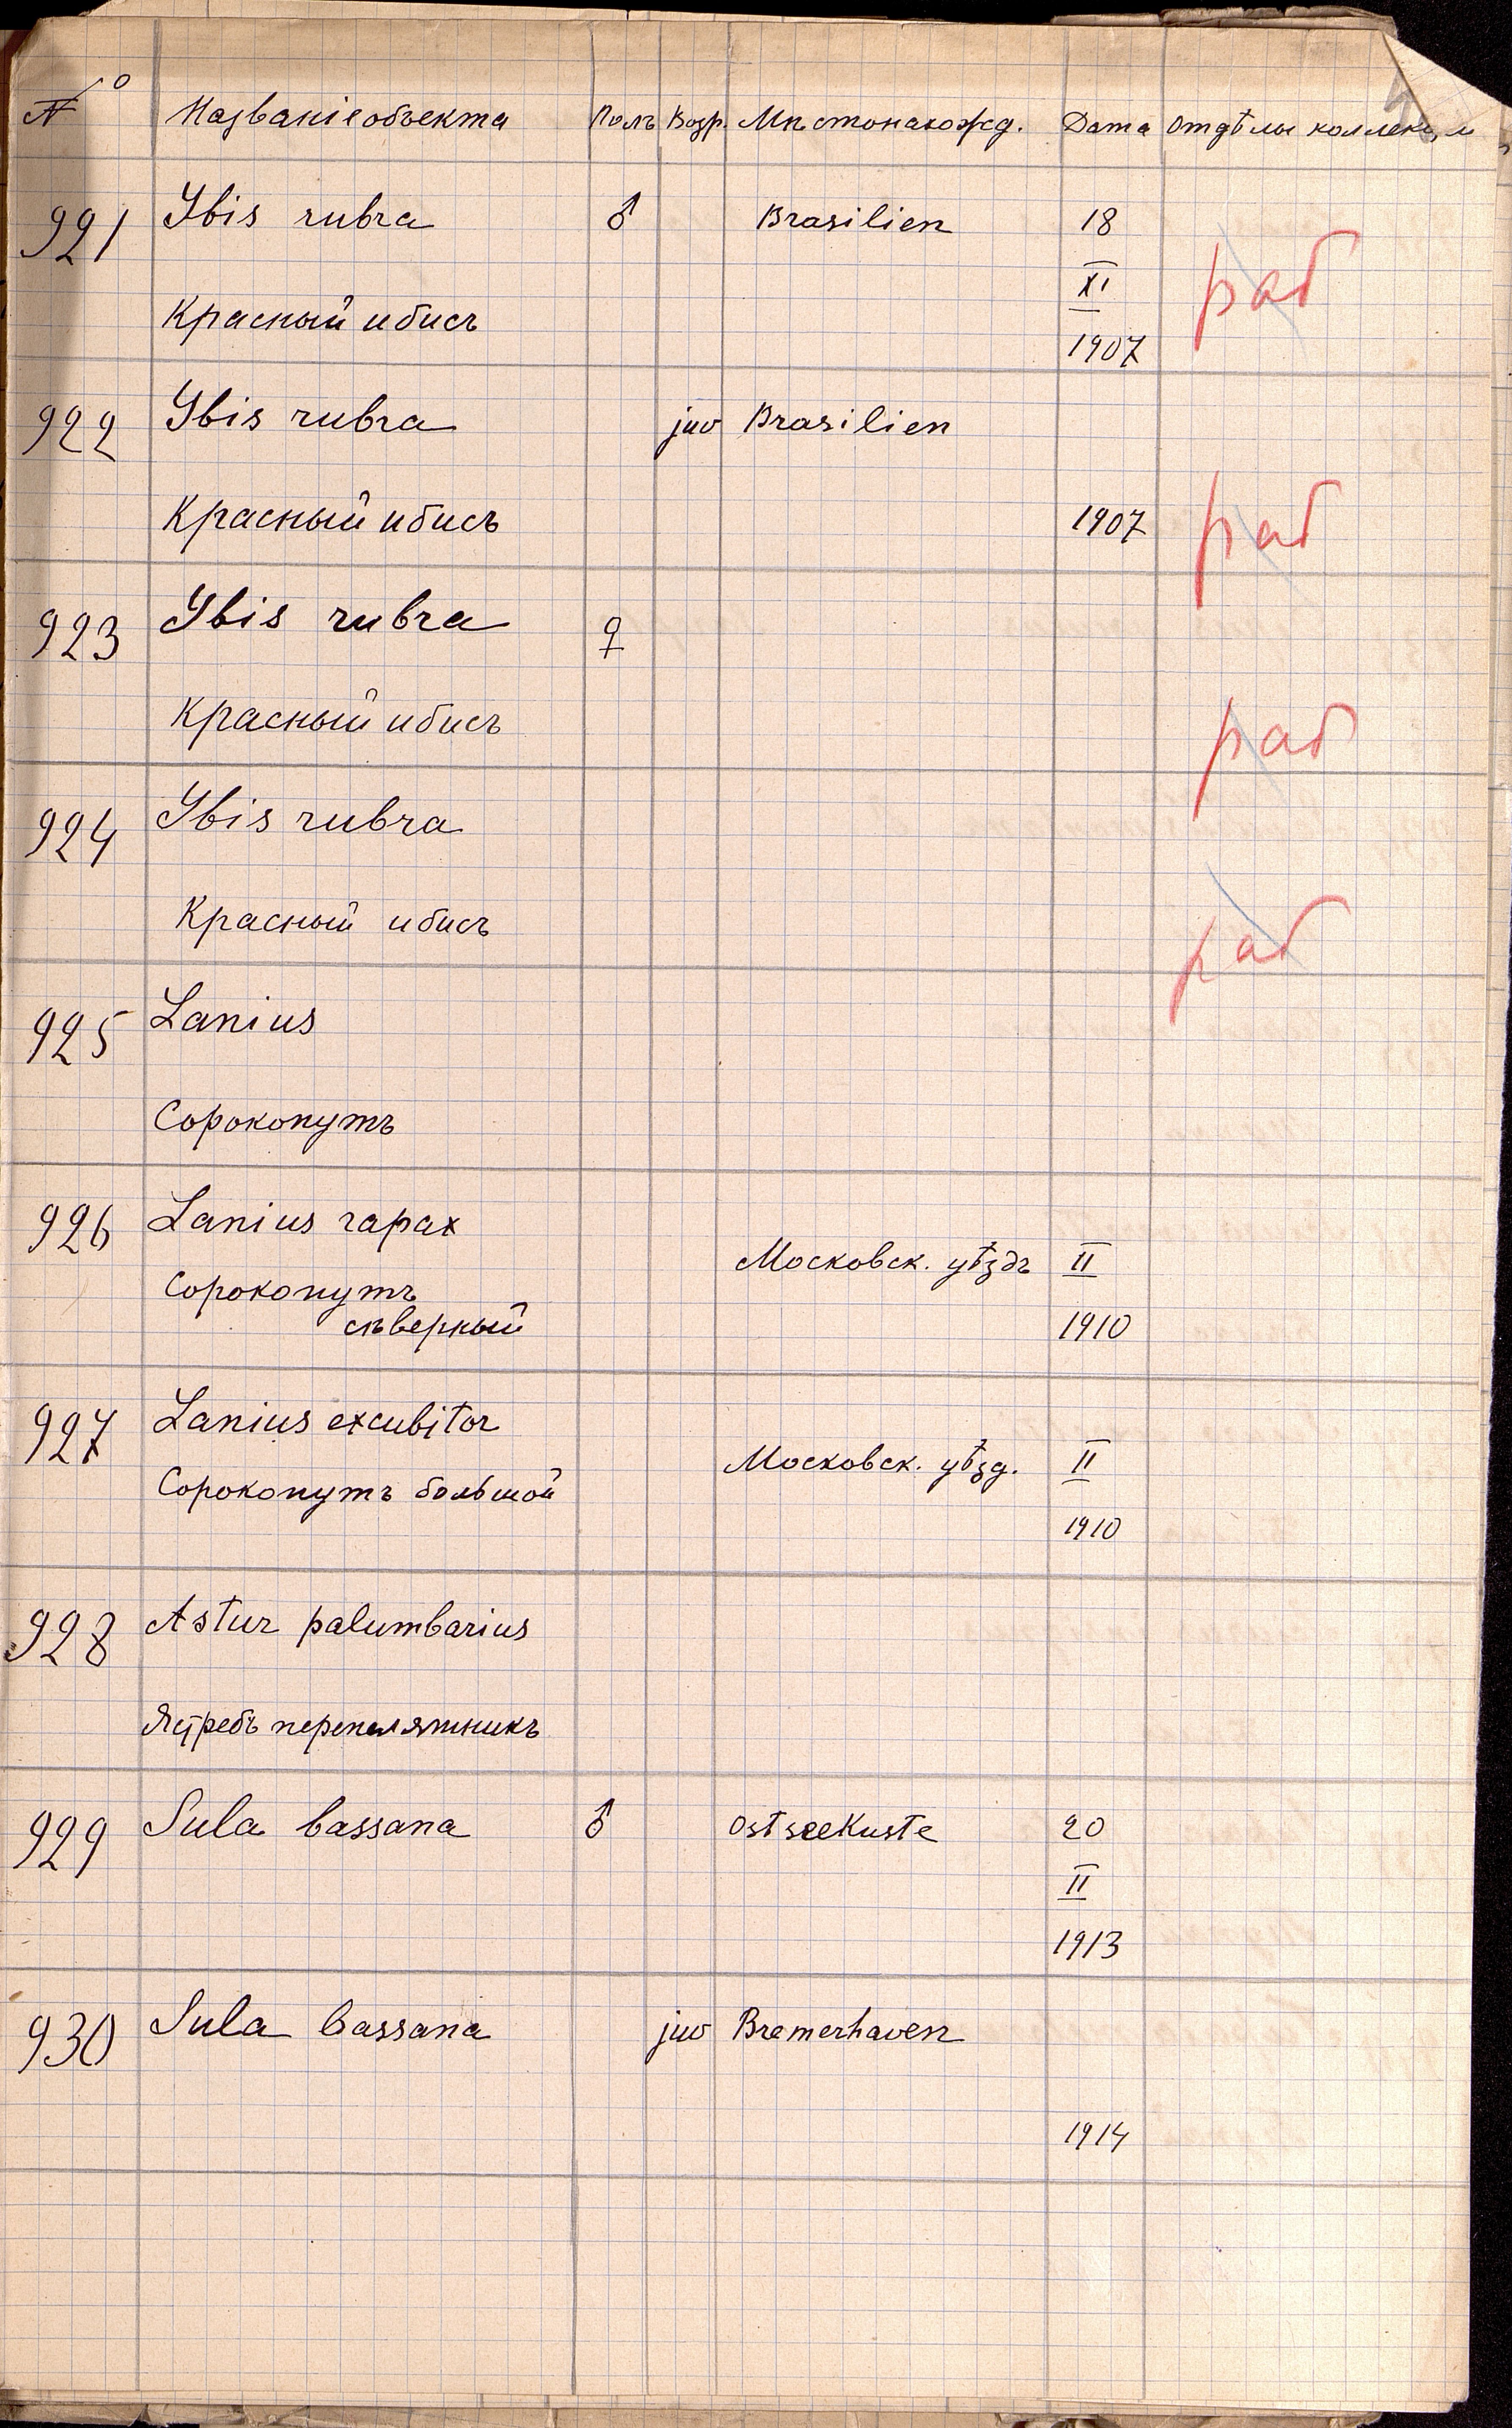 № Названіе объекта Полъ Возр. Мѣстонахожд. Дата Отдѣлы коллекціи
921 Ibis rubra ♂ Brasilien 18
XI
раб
Красный ибисъ
1907
922 Ibis rubra juv Brasilien
Красный ибисъ 1907 раб
923 Ibis rubra ♀
Красный ибисъ раб
924 Ibis rubra
Красный ибисъ раб
925 Lanius
Сорокопутъ
926 Lanius rapax
Московск. уѣздъ II
Сорокопутъ
сѣверный 1910
927 Lanius excubitor
Московск. уѣзд. II
Сорокопутъ большой
1910
928 Astur palumbarius
Ястребъ перепелятникъ
929 Sula bassana ♂ Ostseekuste 20
II
1913
930 Sula bassana juv Bremerhaven
1914